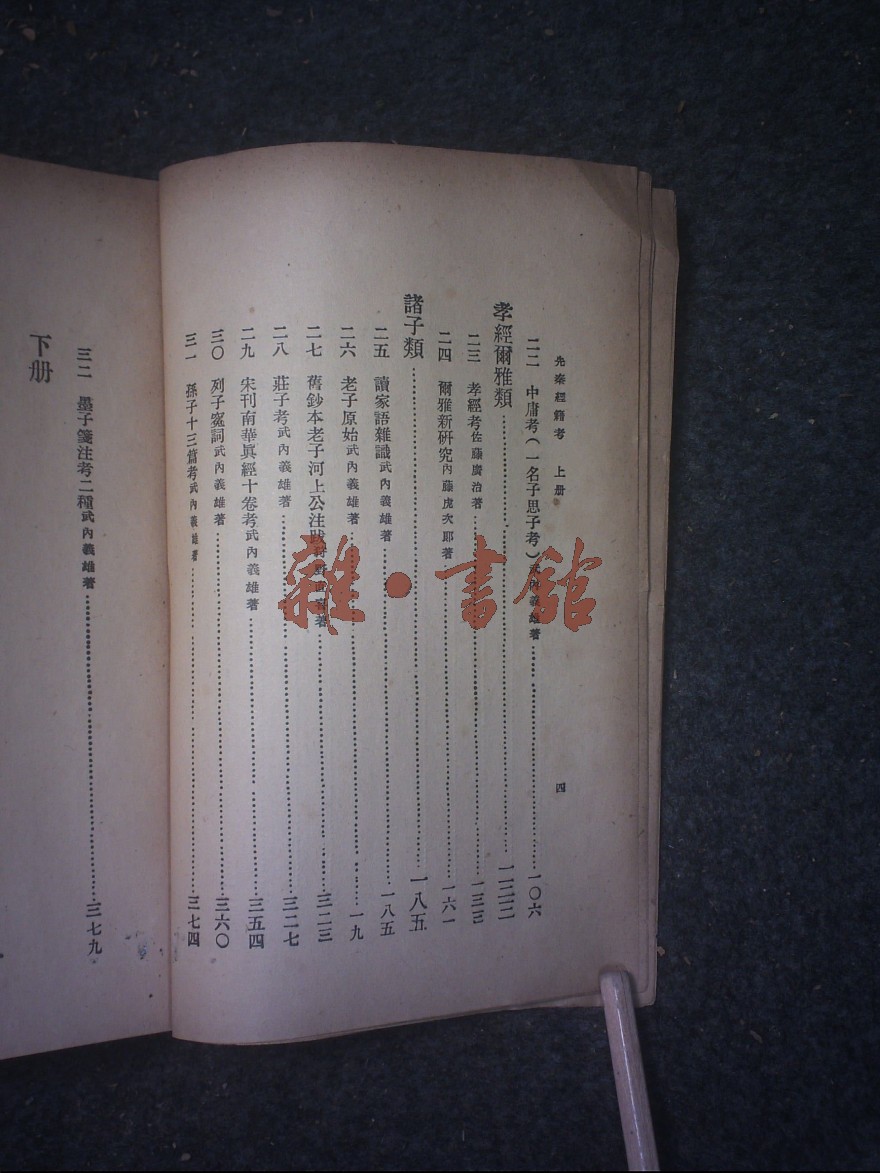 先秦經籍考　上册　四
二二　中庸考(一名子思子考)武內義雄著……一〇六
孝經爾雅類……一二三
二三　孝經考佐藤廣治著……一二三
二四　爾雅新硏究內藤虎次郎著……一六一
諸子類……一八五
二五　讀家語雜識武內義雄著……一八五
二六　老子原始武內義雄著……一九
二七　舊鈔本老子河上公注跋狩野直喜著……三二三
二八　莊子考武內義雄著……三二七
二九　宋刊南華眞經十卷考武內義雄著……三五四
三〇　列子寃詞武內義雄著……三六〇
三一　孫子十三篇考武內義雄著……三七四
三二　墨子箋注考二種武內義雄著……三七九
下册
雜·書館